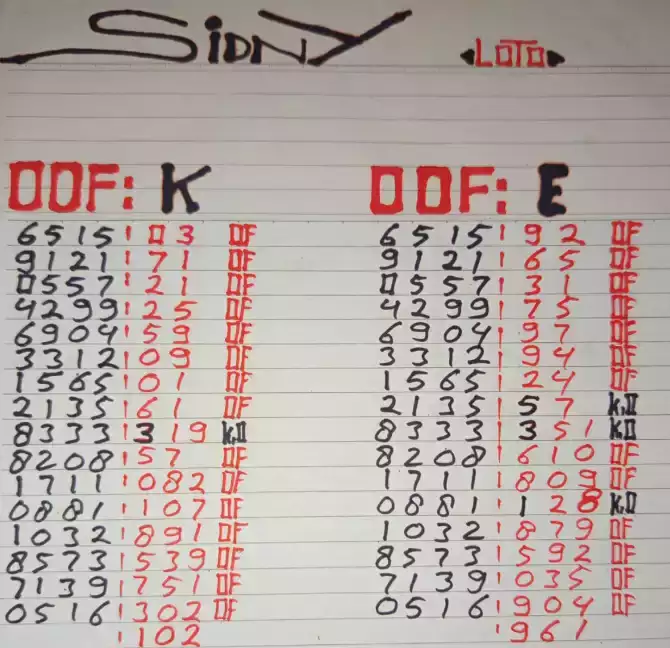 SiDNY
LOTO
OOF: K
6515: 03 OF
9121: 71 OF
0557: 21 OF
4299: 25 OF
6904: 59 OF
3312: 09 OF
1565: 01 OF
2135: 61 OF
8333: 319 K,O
8208: 57 OF
1711: 082 OF
0881: 107 OF
1032: 891 OF
8573: 539 OF
7139: 751 OF
0516: 302 OF
: 102
OOF: E
6515: 92 OF
9121: 65 OF
0557: 31 OF
4299: 75 OF
6904: 97 OF
3312: 94 OF
1565: 24 OF
2135: 57 K,O
8333: 351 K,O
8208: 610 OF
1711: 809 OF
0881: 128 K,O
1032: 879 OF
8573: 592 OF
7139: 035 OF
0516: 904 OF
: 961